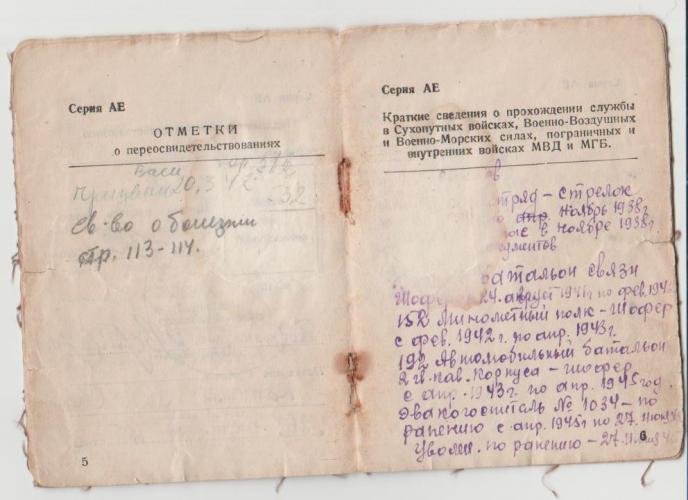 Серия АЕ
ОТМЕТКИ
о переосвидетельствованиях
Св-во о болезни
стр. 113-114.
5
Серия АЕ
Краткие сведения о прохождении службы
в Сухопутных войсках, Военно-Воздушных
и Военно-Морских силах, пограничных и
внутренних войсках МВД и МГБ.
отряд - стрелок
ноябрь 1938г
в ноябре 1938г.
батальон связи
Шофер август 1941г по фев. 194
152 Минометный полк - Шофер
с фев. 1942г. по апр. 1943г.
192 Автомобильный батальон
2 гв. кав. Корпуса - шофер
с апр. 1943г. по апр. 1945 год.
Эвакогоспиталь № 1034 - по
ранению с апр. 1945г по 27.
Уволен. по ранению - 27.
6